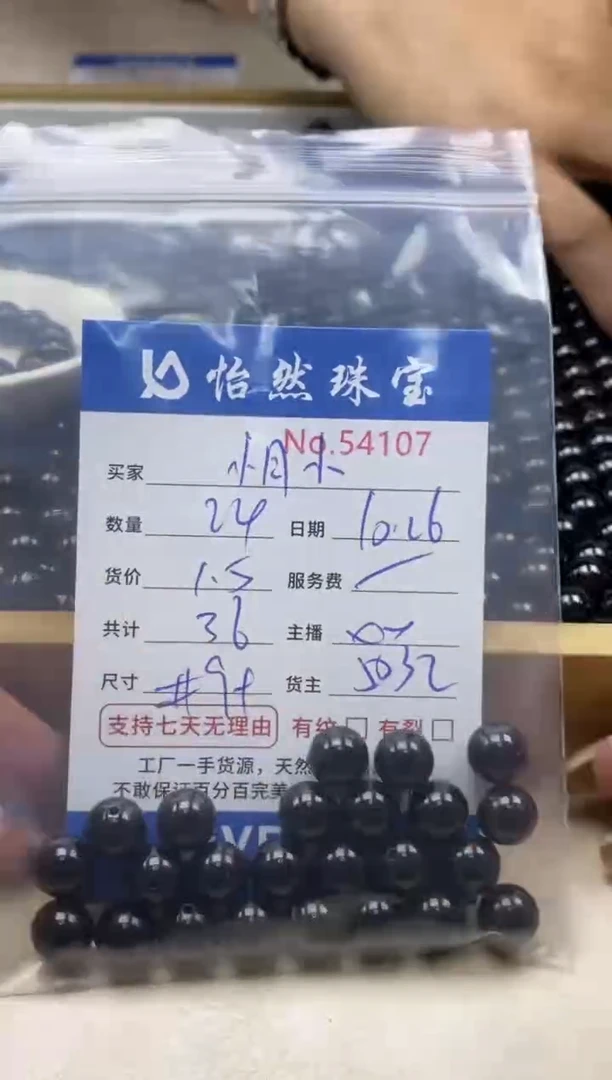 怡然珠宝
No.54107
买家
数量 24 日期 10.26
货价 1.5 服务费
共计 36 主播
尺寸 #9+ 货主 5032
支持七天无理由 有纹 有裂
工厂一手货源，天然
不敢保证百分百完美